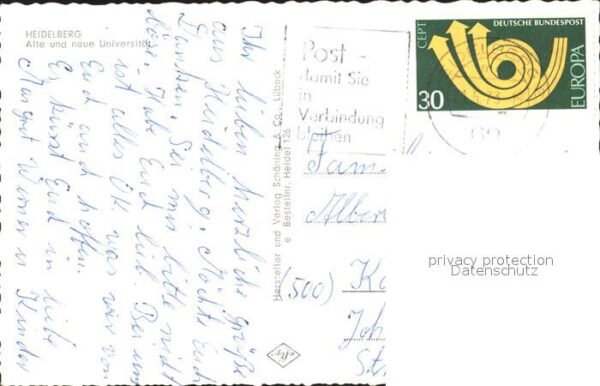 HEIDELBERG
Alte und neue Universität
Ihr Lieben Herzliche Grüße
aus Heidelberg. Möchte Euch
Danken. Sei mir bitte nicht
böse. Habe Euch lieb. Bei uns
ist alles OK. was wir von
Euch auch hoffen.
Es küsst Euch in Liebe
Margot Werner u Kinder
Hersteller und Verlag Schöning & Co., Lübeck
Bestellnr. Heidel 126
Post -
damit Sie
in
Verbindung
bleiben
CEPT
DEUTSCHE BUNDESPOST
30
EUROPA
Fam
Alber
(500) Kö
Joh
St.
privacy protection
Datenschutz